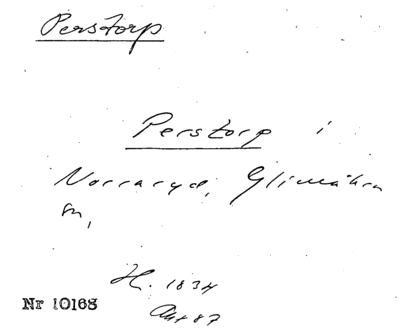 Perstorp
Perstorp i
Norraryd, Glimåkra
sn,
H. 1834
Nr 10168
87